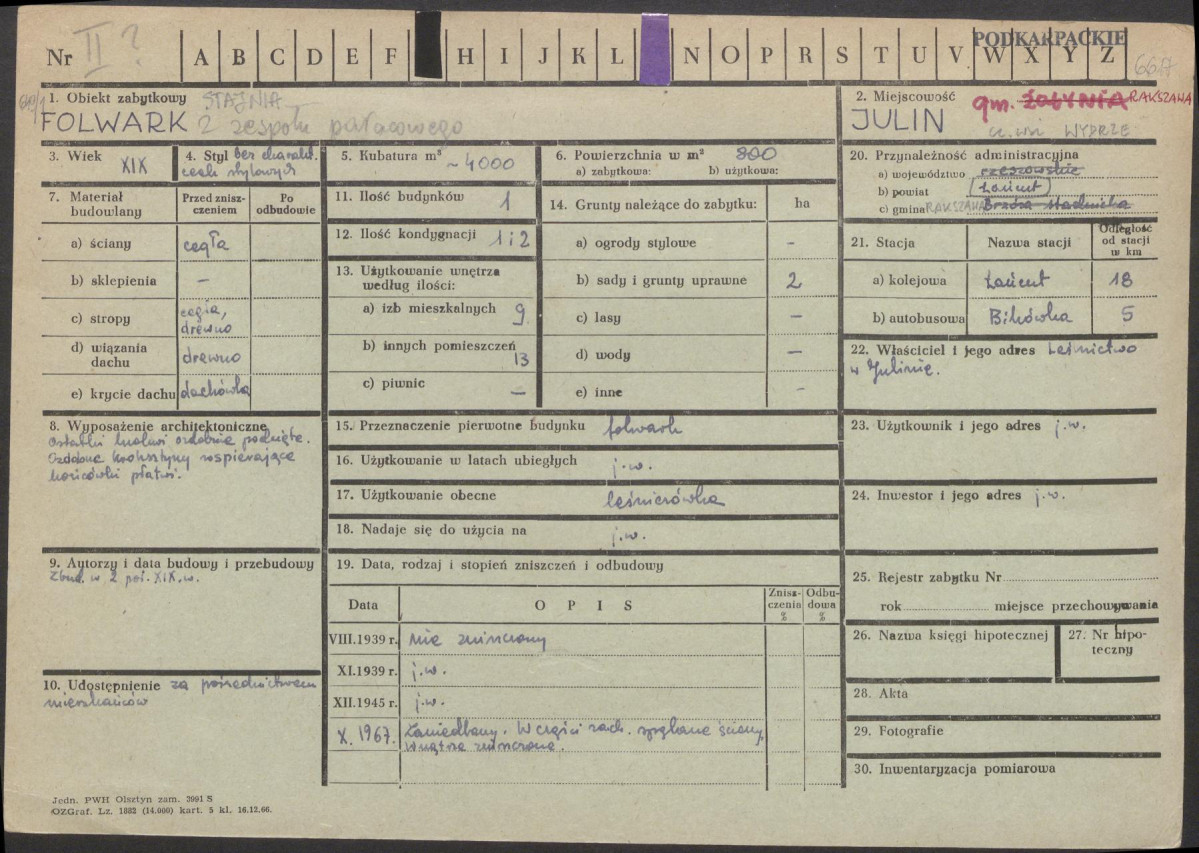 Nr II ? A B C D E F H I J K L N O P R S T U V W X Y Z
PODKARPACKIE
667
1. Obiekt zabytkowy STAJNIA
FOLWARK z zespołu pałacowego
2. Miejscowość gm. ŻOŁYNIA RAKSZAWA
JULIN
WYDRZE
3. Wiek XIX
4. Styl bez charakt.
cech stylowych
5. Kubatura m³ ~4000
6. Powierzchnia w m² 800
a) zabytkowa: b) użytkowa:
7. Materiał budowlany
Przed zniszczeniem
Po odbudowie
a) ściany cegła
b) sklepienia –
c) stropy cegła,
drewno
d) wiązania dachu drewno
e) krycie dachu dachówka
8. Wyposażenie architektoniczne
ostatki krokwi ozdobnie podcięte.
Ozdobne kroksztyny wspierające
końcówki płatwi.
9. Autorzy i data budowy i przebudowy
Zbud. w 2 poł. XIX. w.
10. Udostępnienie za pośrednictwem
mieszkańców
11. Ilość budynków 1
12. Ilość kondygnacji 1 i 2
13. Użytkowanie wnętrza
według ilości:
a) izb mieszkalnych 9
b) innych pomieszczeń
13
c) piwnic –
14. Grunty należące do zabytku: ha
a) ogrody stylowe –
b) sady i grunty uprawne 2
c) lasy –
d) wody –
e) inne –
15. Przeznaczenie pierwotne budynku folwark
16. Użytkowanie w latach ubiegłych j.w.
17. Użytkowanie obecne leśniczówka
18. Nadaje się do użycia na j.w.
19. Data, rodzaj i stopień zniszczeń i odbudowy
Data O P I S Zniszczenia % Odbudowa %
VIII.1939 r. nie zniszczony
XI.1939 r. j.w.
XII.1945 r. j.w.
X. 1967. Zaniedbany. W części zach. ściany,
wnętrza zniszczone.
20. Przynależność administracyjna
a) województwo rzeszowskie
b) powiat Łańcut
c) gmina RAKSZAWA Brzóza Stadnicka
21. Stacja Nazwa stacji Odległość
od stacji
w km
a) kolejowa Łańcut 18
b) autobusowa Bikówka 5
22. Właściciel i jego adres Leśnictwo
w Julinie.
23. Użytkownik i jego adres j.w.
24. Inwestor i jego adres j.w.
25. Rejestr zabytku Nr
rok miejsce przechowywania
26. Nazwa księgi hipotecznej
27. Nr hipoteczny
28. Akta
29. Fotografie
30. Inwentaryzacja pomiarowa
Jedn. PWH Olsztyn zam. 3991 S
OZGraf. Lz. 1882 (14.000) kart. 5 kl. 16.12.66.